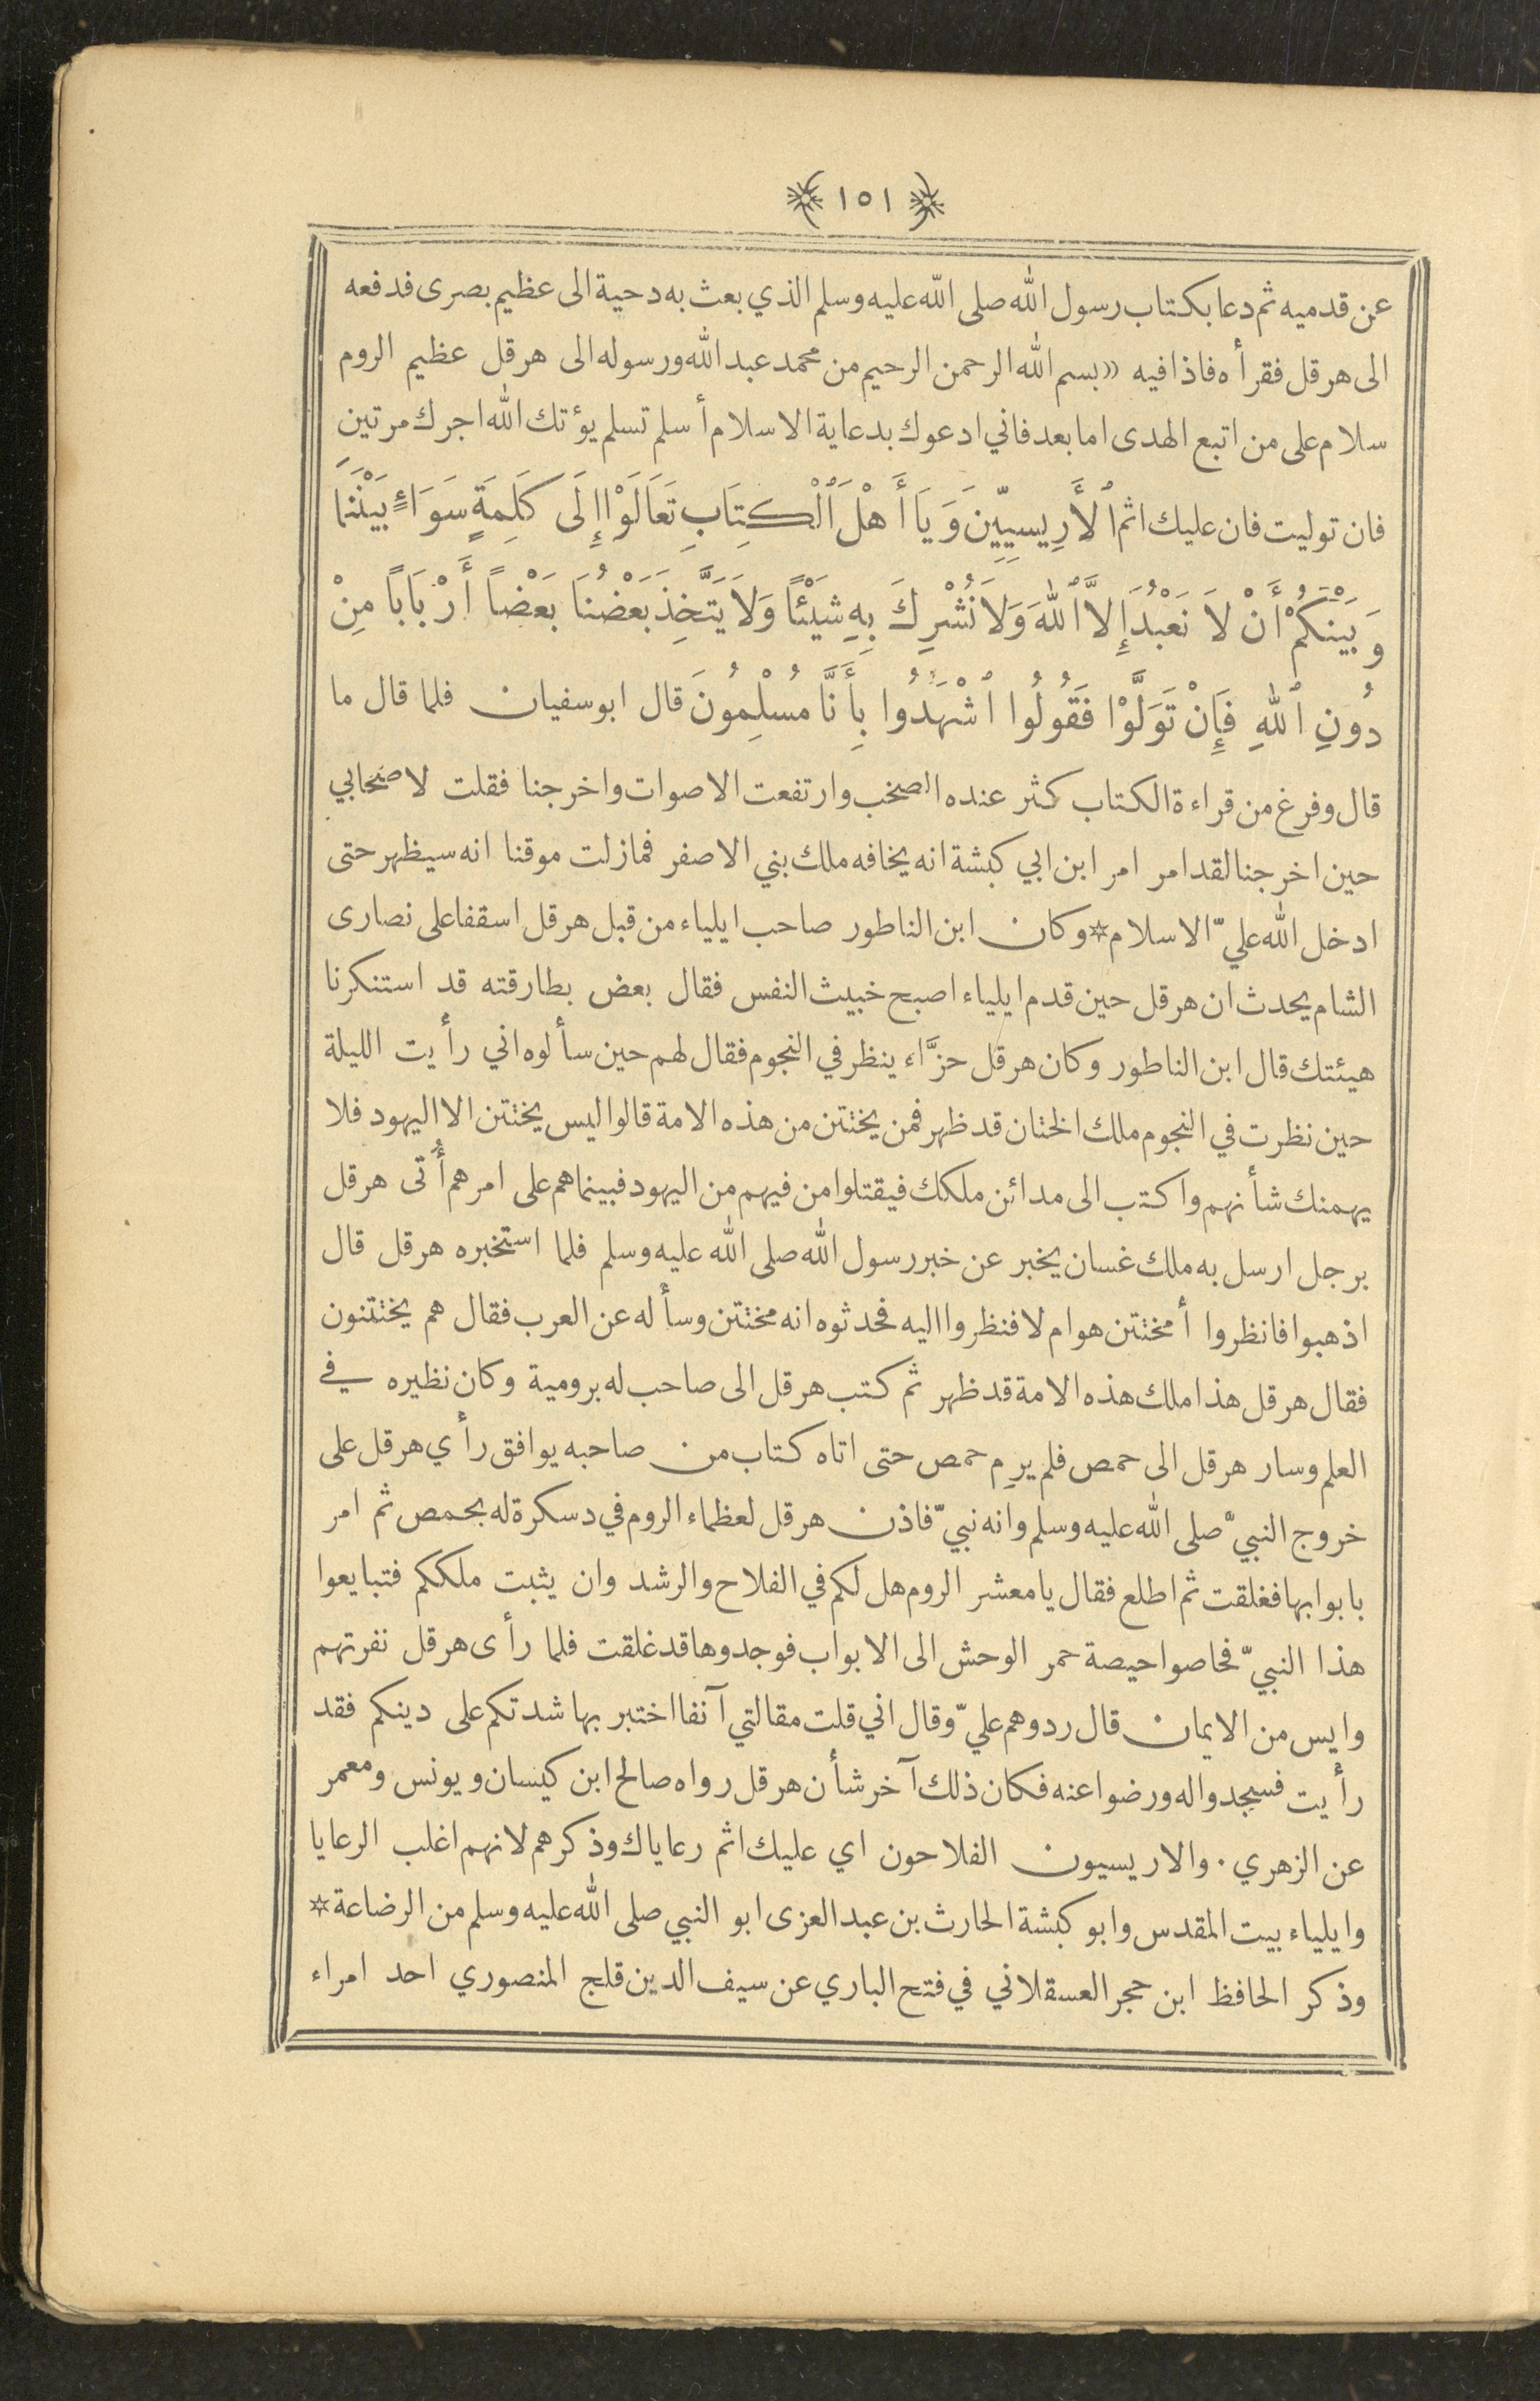 ﴿ ١٥١ ﴾
عن قدميه ثم دعا بكتاب رسول الله صلى الله عليه وسلم الذي بعث به دحية الى عظيم بصرى فدفعه
الى هرقل فقرأه فاذا فيه «بسم الله الرحمن الرحيم من محمد عبد الله ورسوله الى هرقل عظيم الروم
سلام على من اتبع الهدى اما بعد فاني ادعوك بدعاية الاسلام أسلم تسلم يؤتك الله اجرك مرتين
فان توليت فان عليك اثم ٱلأَرِيسيِّينَ وَيَا أَهْلَ ٱلْكِتَابِ تَعَالَوْا إِلَى كَلِمَةٍ سَوَاءٍ بَيْنَنَا
وَبَيْنَكُمْ أَنْ لاَ نَعْبُدَ إِلاَّ ٱللهَ وَلاَ نُشْرِكَ بِهِ شَيْئًا وَلاَ يَتَّخِذَ بَعْضُنَا بَعْضًا أَرْبَابًا مِنْ
دُونِ ٱللهِ فَإِنْ تَوَلَّوْا فَقُولُوا ٱشْهَدُوا بِأَنَّا مُسْلِمُونَ قال ابوسفيان فلما قال ما
قال وفرغ من قراءة الكتاب كثر عنده الصخب وارتفعت الاصوات واخرجنا فقلت لاصحابي
حين اخرجنا لقد امر امر ابن ابي كبشة انه يخافه ملك بني الاصفر فما زلت موقنا انه سيظهر حتى
ادخل الله عليّ الاسلام * وكان ابن الناطور صاحب ايلياء من قبل هرقل اسقفا على نصارى
الشام يحدث ان هرقل حين قدم ايلياء اصبح خبيث النفس فقال بعض بطارقته قد استنكرنا
هيئتك قال ابن الناطور وكان هرقل حزَّاء ينظر في النجوم فقال لهم حين سألوه اني رأيت الليلة
حين نظرت في النجوم ملك الختان قد ظهر فمن يختتن من هذه الامة قالوا ليس يختتن الا اليهود فلا
يهمنك شأنهم واكتب الى مدائن ملكك فيقتلوا من فيهم من اليهود فبينما هم على امرهم أُتى هرقل
برجل ارسل به ملك غسان يخبر عن خبر رسول الله صلى الله عليه وسلم فلما استخبره هرقل قال
اذهبوا فانظروا أمختتن هو ام لا فنظروا اليه فحدثوه انه مختتن وسأله عن العرب فقال هم يختتنون
فقال هرقل هذا ملك هذه الامة قد ظهر ثم كتب هرقل الى صاحب له برومية وكان نظيره في
العلم وسار هرقل الى حمص فلم يرِم حمص حتى اتاه كتاب من صاحبه يوافق رأي هرقل على
خروج النبيّ صلى الله عليه وسلم وانه نبيّ فاذن هرقل لعظماء الروم في دسكرة له بحمص ثم امر
بابوابها فغلقت ثم اطلع فقال يا معشر الروم هل لكم في الفلاح والرشد وان يثبت ملككم فتبايعوا
هذا النبيّ فحاصوا حيصة حمر الوحش الى الابواب فوجدوها قد غلقت فلما رأى هرقل نفرتهم
وايس من الايمان قال ردوهم عليّ وقال اني قلت مقالتي آنفا اختبر بها شدتكم على دينكم فقد
رأيت فسجدوا له ورضوا عنه فكان ذلك آخر شأن هرقل رواه صالح ابن كيسان ويونس ومعمر
عن الزهري . والاريسيون الفلاحون اي عليك اثم رعاياك وذكرهم لانهم اغلب الرعايا
وايلياء بيت المقدس وابو كبشة الحارث بن عبد العزى ابو النبي صلى الله عليه وسلم من الرضاعة *
وذكر الحافظ ابن حجر العسقلاني في فتح الباري عن سيف الدين قلج المنصوري احد امراء